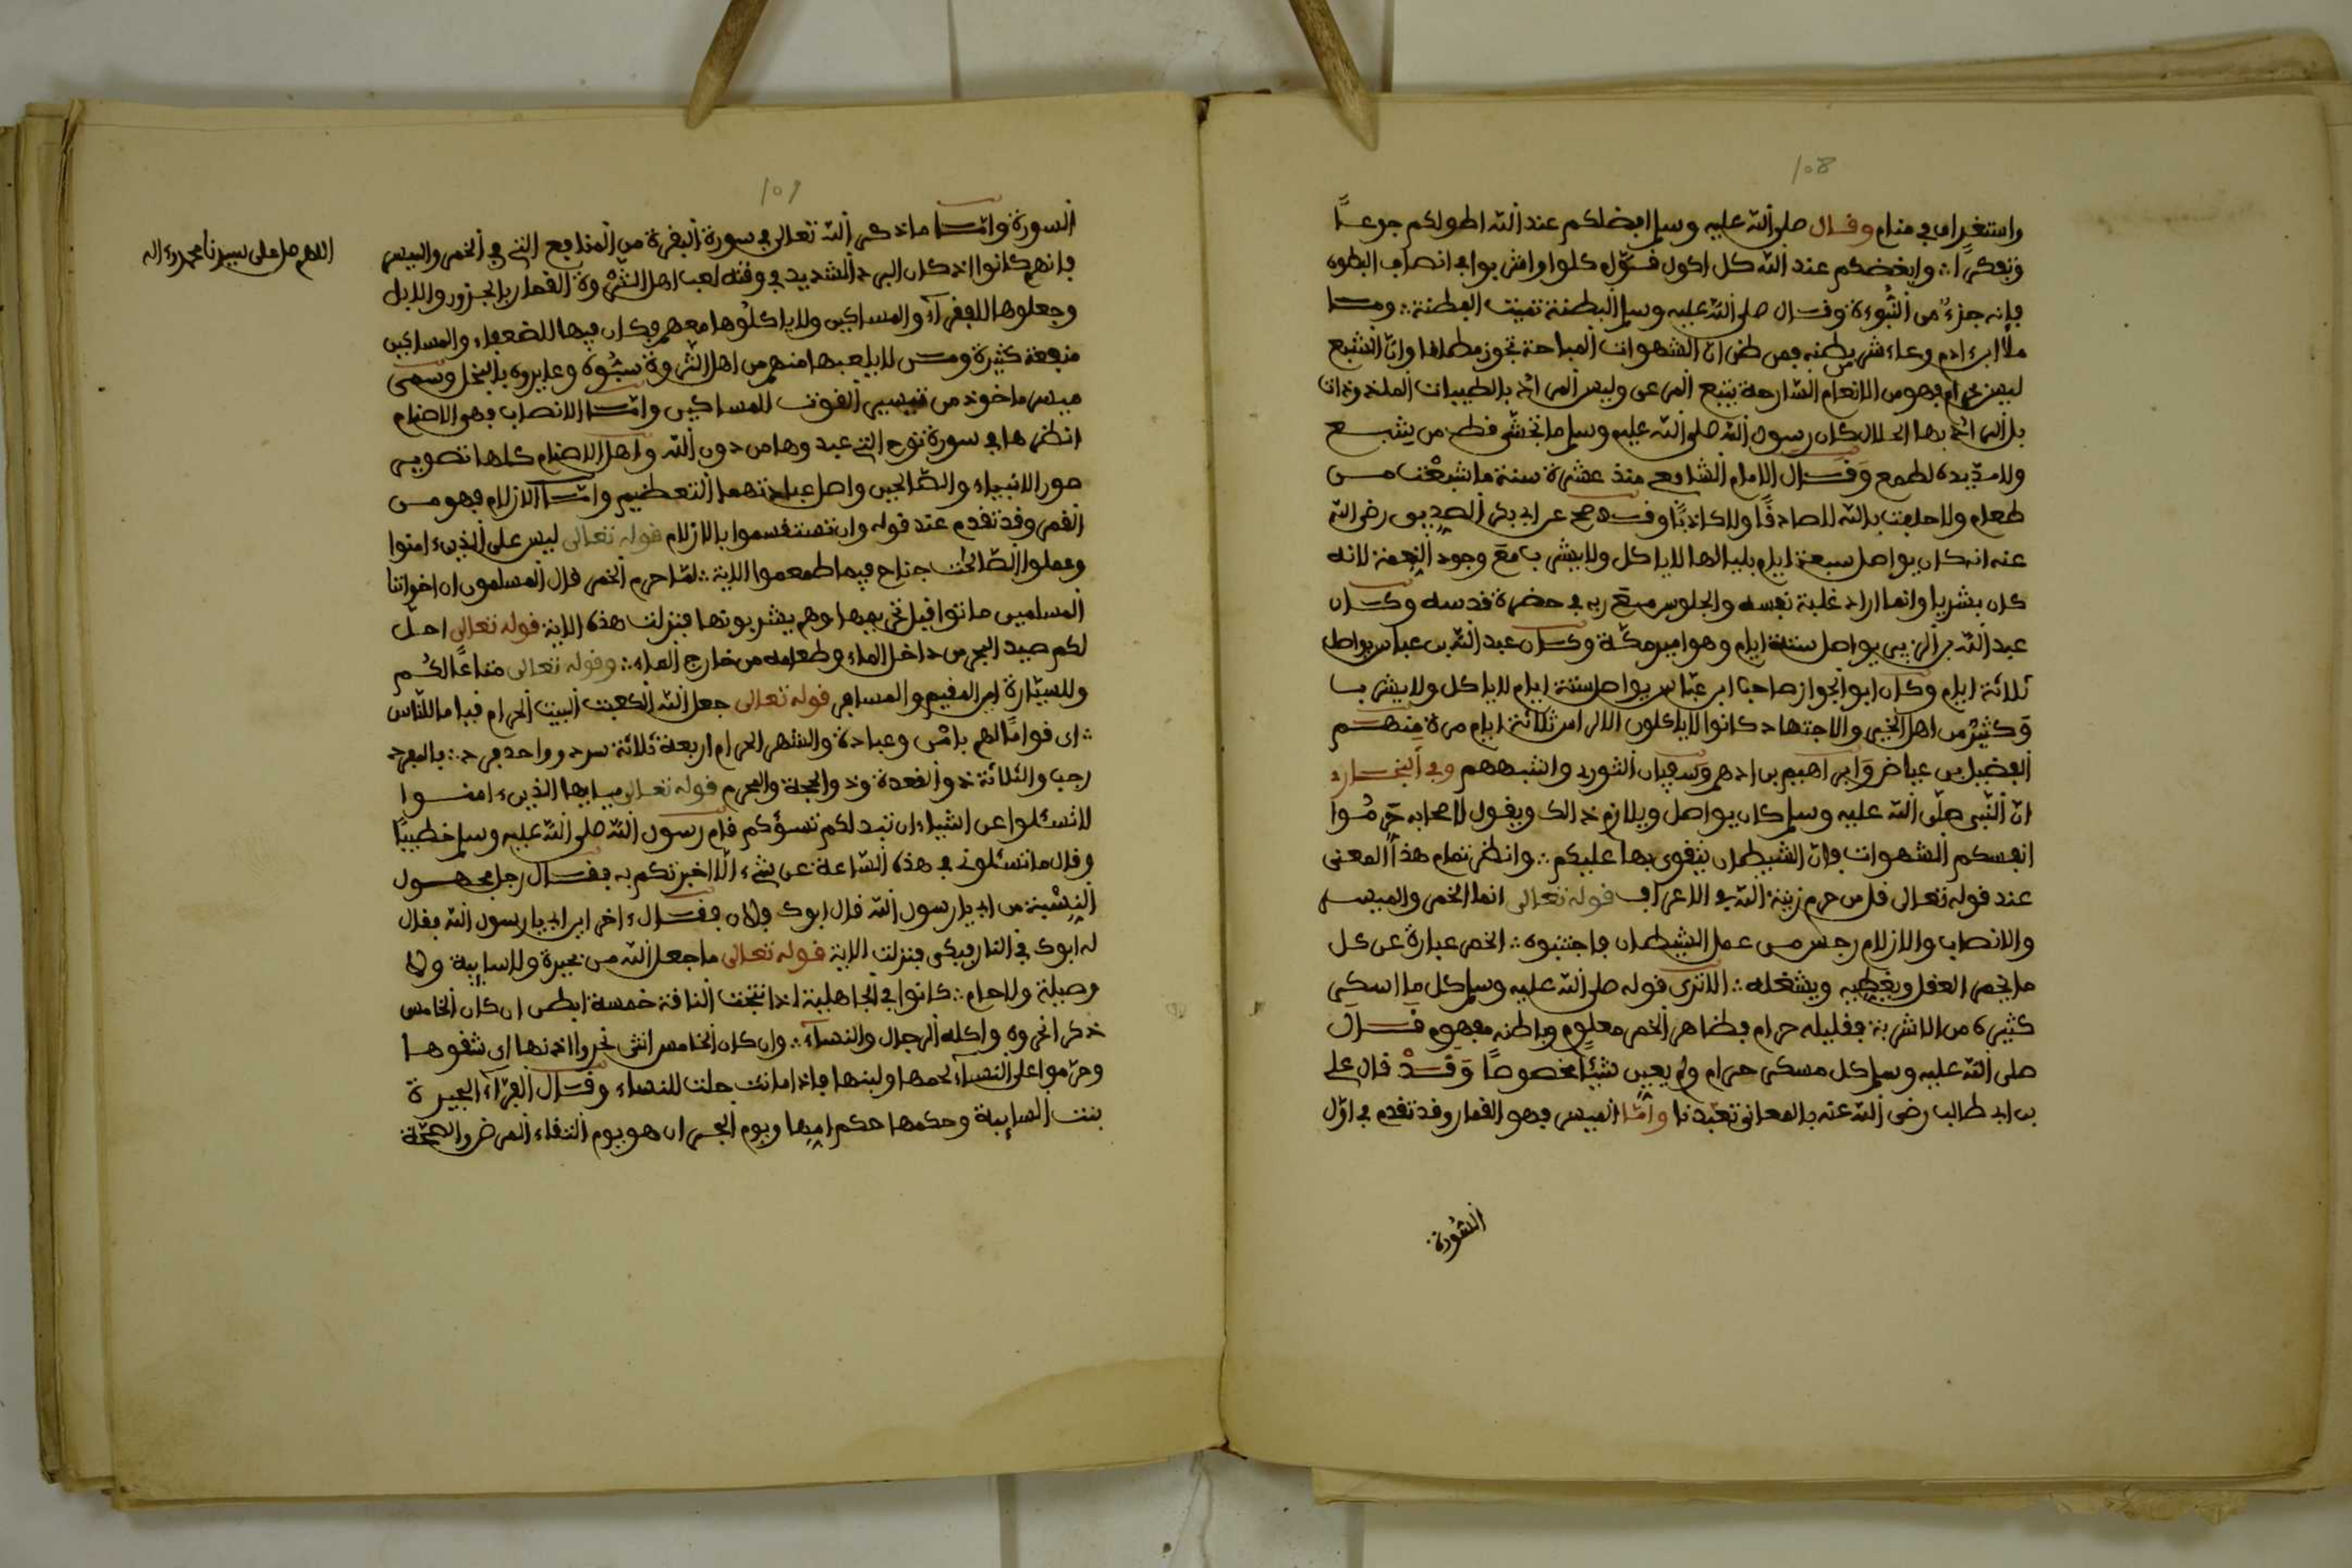 108
واستغراق في منام وقال صلى الله عليه وسلم افضلكم عند الله اطولكم جوعـا
وتفكرا ؞ وابغضكم عند الله كل اكول كلوا واشربوا في انصاف البطون
فإنه جزء من النبوءة وقال صلى الله عليه وسلم البطنة تميت الفطنة ؞ ومـا
ملأ ابن ءادم وعاء شر من بطنه فمن ظن ان الشهوات المباحة تجوز مطلقا وان الشبع
ليس بحرام فهو من الانعام السارحة يتبع المرعى وليس المراد بالطيبات الملذوذات
بل المراد بها الحلال كان رسول الله صلى الله عليه وسلم ما تجشى قط من يشبع
ولا مد يده لطمع وقال الامام الشافعي منذ عشرة سنة ما شبعت مـن
طعام ولا حلفت بالله لا صادقا ولا كاذبا وقد صح عن ابي بكر الصديق رضي الله
عنه انه كان يواصل سبعة ايام بليالها لا ياكل ولا يشرب مع وجود النعمة لانه
كان بشريا وانما اراد غلبة نفسه والجلوس مع ربه في حضرة قدسه وكـان
عبد الله بن الزبير يواصل ستة ايام وهو امير مكة وكـان عبد الله بن عباس يواصل
ثلاثة ايام وكان ابو الجواز صاحب ابن عباس يواصل ستة ايام لا ياكل ولا يشرب
وكثير من اهل الخير والاجتهاد كانوا لا ياكلون الا راس ثلاثة ايام مرة منهـم
الفضيل بن عياض وابراهيم بن ادهم وسفيان الثوري واشبههم وفي البخـاري
ان النبي صلى الله عليه وسلم كان يواصل ويلازم ذالك ويقول لاصحابه حرموا
انفسكم الشهوات فان الشيطان يتقوى بها عليكم ؞ وانظر تمام هذا المعنى
عند قوله تعالى قل من حرم زينة الله في الاعراف قوله تعالى انما الخمر والميسـر
والانصاب والازلام رجس من عمل الشيطان فاجتنبوه ؞ الخمر عبارة عن كل
ما يخمر العقل ويغطيه ويشغله ؞ الا ترى قوله صلى الله عليه وسلم كل ما اسكر
كثيره من الاشربة فقليله حرام فظاهر الخمر معلوم وباطنه مفهوم قـال
صلى الله عليه وسلم كل مسكر حرام ولم يعين شيئا مخصوصا وقـد قال علي
بن ابي طالب رضي الله عنه بالمعاني تعبدنا واما الميسر فهو القمار وقد تقدم في اول
السورة
109
السورة وامـا ما ذكر الله تعالى في سورة البقرة من المنافع التي في الخمر والميسر
فانهم كانوا اذا كان البرد الشديد في وقته لعب اهل الثروة القمار بالجزور والابل
وجعلوها للفقراء والمساكين ولا ياكلوها معهم فكان فيها للضعفاء والمساكين
منفعة كثيرة ومـن لا يلعبها منهم من اهل الثروة سبوه وعايروه بالبخل وسمي
ميسر ماخوذ من تيسير القوت للمساكين وامـا الانصاب فهو الاصنام
انظرها في سورة نوح التي عبدوها من دون الله واصل الاصنام كلها تصوير
صور الانبياء والصالحين واصل عبادتهما التعظيم وامـا الازلام فهو مـن
القمر وقد تقدم عند قوله وان تستقسموا بالازلام قوله تعالى ليس على الذين ءامنوا
وعملوا الصالحت جناح فيما طعموا الاية ؞ لما حرم الخمر قال المسلمون ان اخواننا
المسلمين ماتوا قبل تحريمها وهم يشربونها فنزلت هذه الاية قوله تعالى احل
لكم صيد البحر من داخل الماء وطعامه من خارج الماء ؞ وقوله تعالى متاعا لكم
وللسيارة اي المقيم والمسافر قوله تعالى جعل الله الكعبت البيت الحرام قيما للناس
؞ اي قواما لهم بامن وعبادة والشهر الحرام اربعة ثلاثة سرد وواحد فرد ؞ بالفرد
رجب والثلاثة ذو القعدة وذو الحجة والمحرم قوله تعـالى يـايها الذين ءامنـوا
لا تسئلوا عن اشياء ان تبد لكم تسؤكم قام رسول الله صلى الله عليه وسلم خطيبا
وقال ما تسئلوني في هذه الساعة عن شيء الا اخبرتكم به فقـال رجل مجهـول
النسبة من ابي يا رسول الله قال ابوك فلان فقـال ءاخر اين ابي يا رسول الله فقال
له ابوك في النار فبكى فنزلت الاية قوله تعالى ما جعل الله من بحيرة ولا سايبة ولا
وصيلة ولا حام ؞ كانوا في الجاهلية اذا نتجت الناقة خمسة ابطن ان كان الخامس
ذكر انحروه واكله الرجال والنساء ؞ وان كان الخامس انثى نحروا اذنها اي شقوها
وحرموا على النساء لحمها ولبنها فاذا ماتت حلت للنساء وقـال الفراء البحيرة
بنت السايبة وحكمها حكم امها ويوم البحران هو يوم التقاء المرض والصحة
اللهم صل على سيدنا محمد وءاله